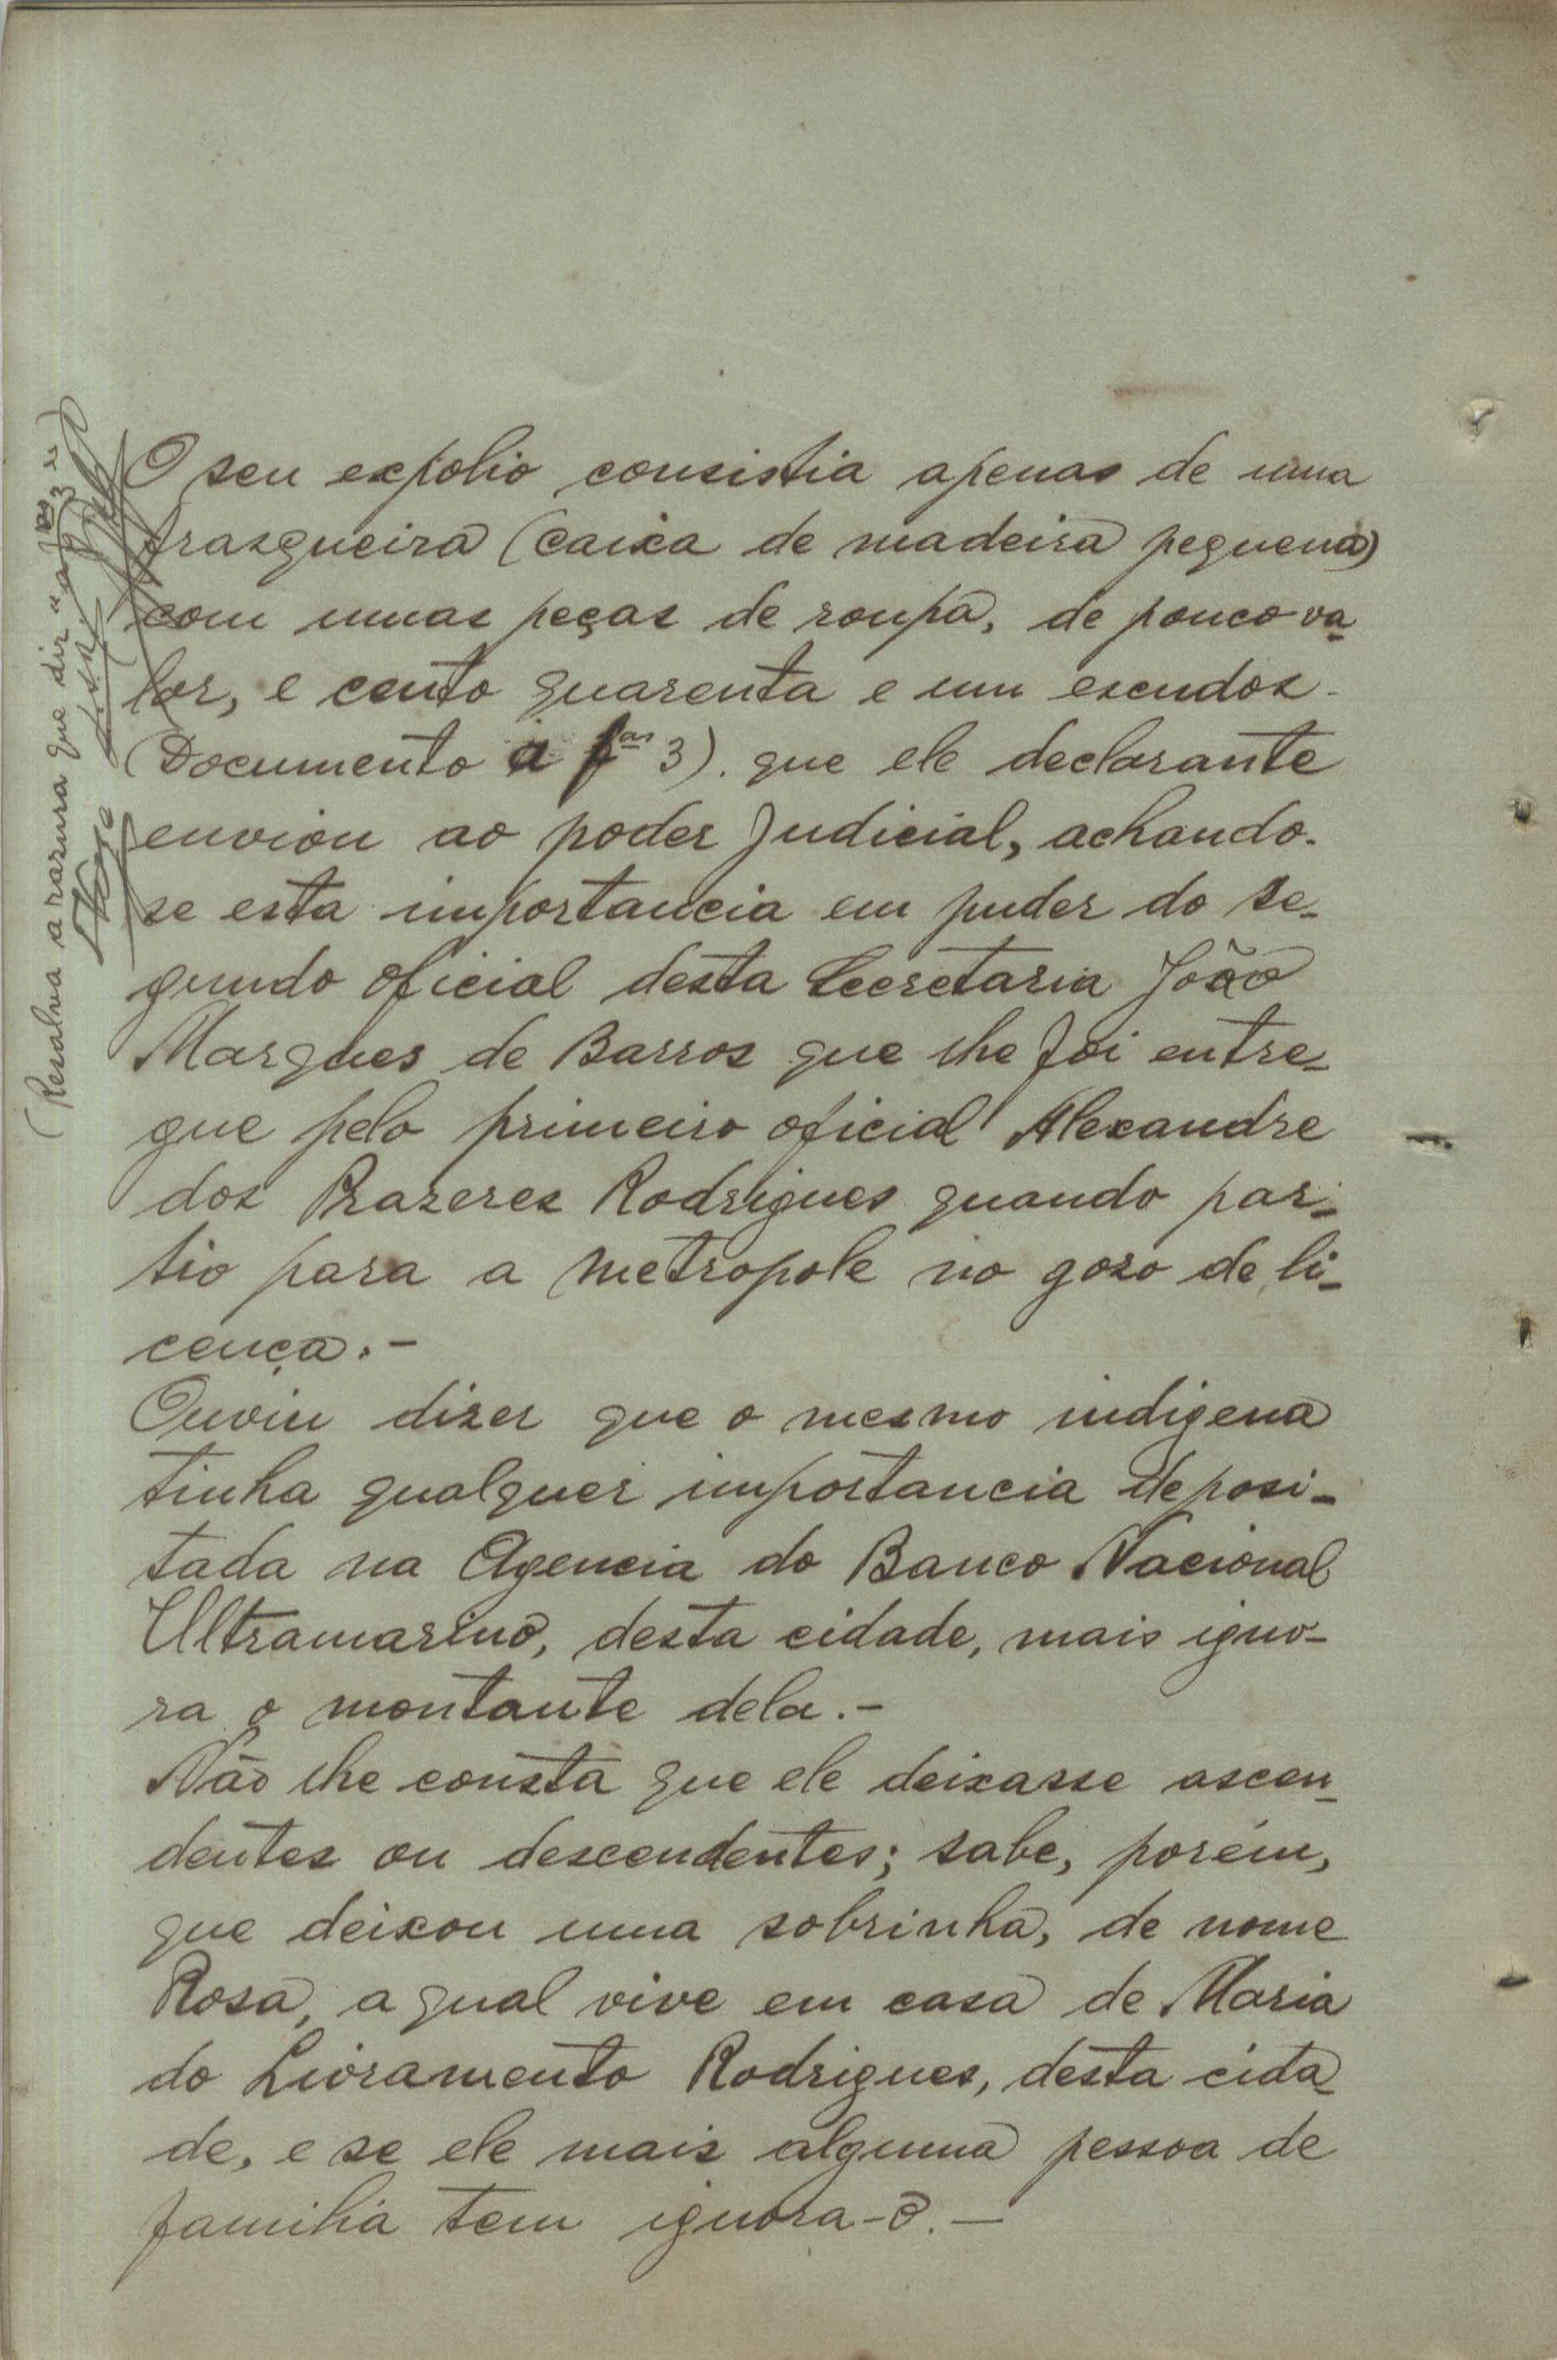 O seu expolio consistia apenas de uma
frasqueira (caixa de madeira pequena)
com umas peças de roupa, de pouco va-
lor, e cento quarenta e um escudos-
(Documento a fas 3). que ele declarante
enviou ao poder Judicial, achando-
se esta importancia em puder do se-
gundo oficial desta Secretaria João
Marques de Barros que lhe foi entre-
gue pelo primeiro oficial Alexandre
dos Prazeres Rodrigues quando par-
tio para a metropole no goso de li-
cença.-
Ouviu dizer que o mesmo indigena
tinha qualquer importancia deposi-
tada na Agencia do Banco Nacional
Ultramarino, desta cidade, mais igno-
ra o montante dela.-
Não lhe consta que ele deixasse ascen-
dentes ou descendentes; sabe, porém,
que deixou uma sobrinha, de nome
Rosa, a qual vive em casa de Maria
do Livramento Rodrigues, desta cida-
de, e se ele mais alguma pessoa de
familia tem ignora-o.-
(Resalva a rasura que diz "a fas 3")